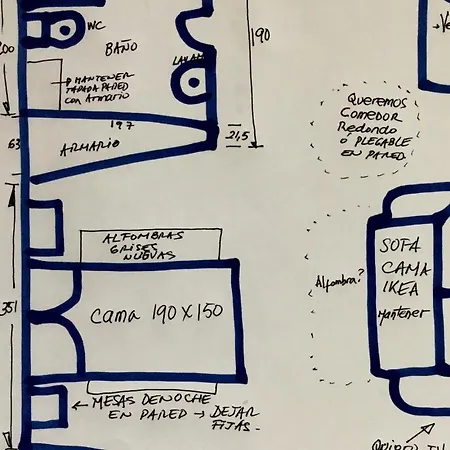 WC
BAÑO
190
→Ve
200
LAVAB
MANTENER
TAPADA PARED
con Armario
197
21,5
63
ARMARIO
Queremos
Comedor
Redondo
ó PLEGABLE
EN PARED
ALFOMBRAS
GRISES
NUEVAS
SOFA
CAMA
IKEA
Mantener
Alfombra?
351
Cama 190 X 150
← MESAS DE NOCHE
EN PARED → DEJAR
FIJAS.-